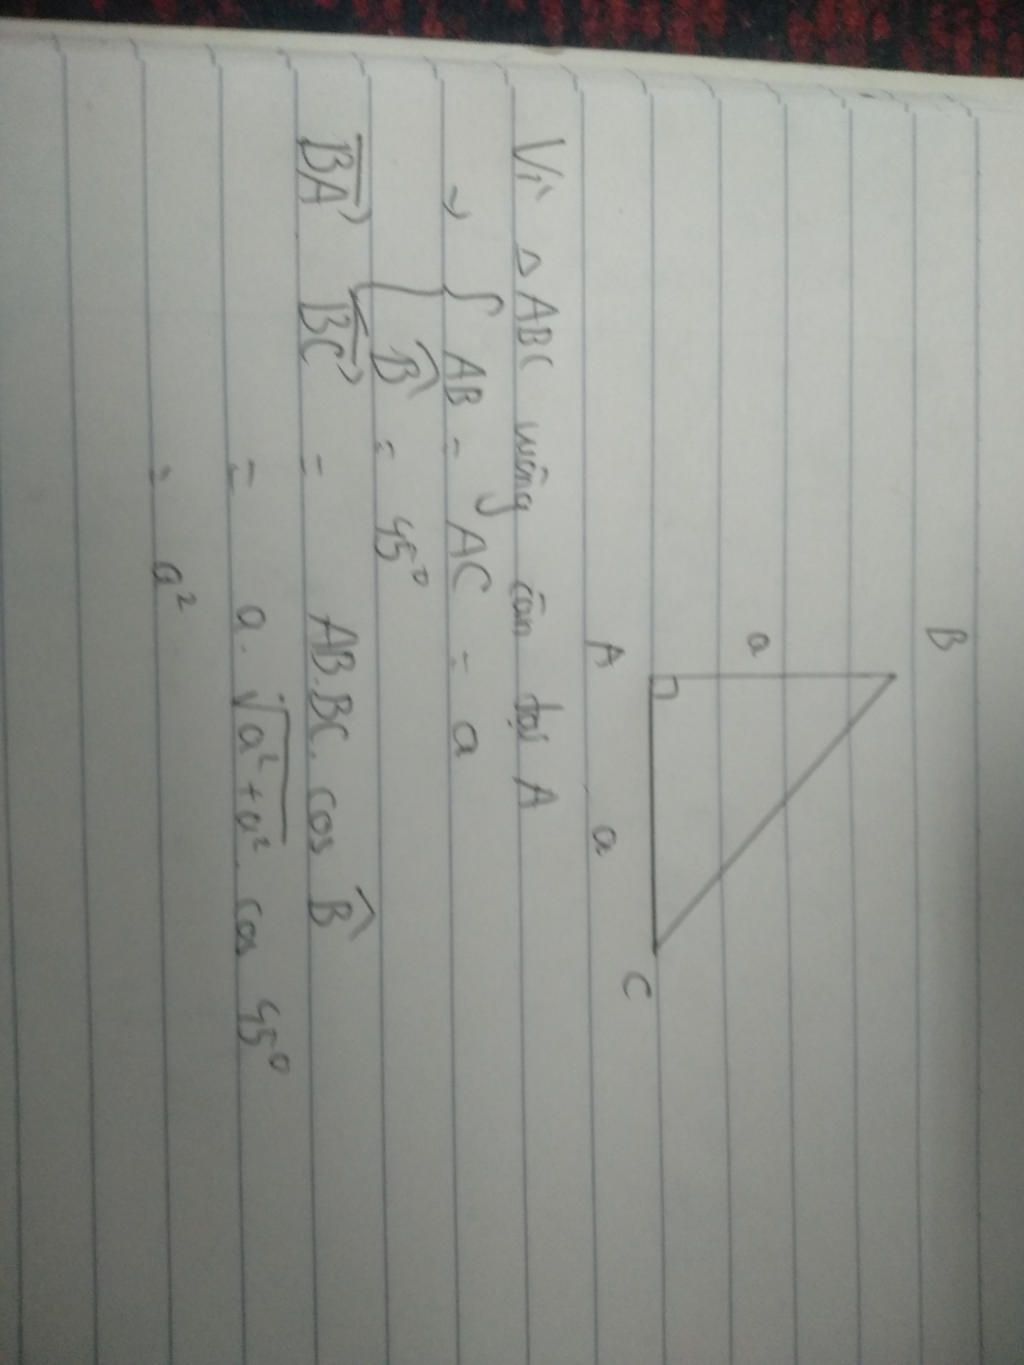 B
a
A
a
C
Vì △ABC vuông cân tại A
→ { AB = AC = a
B̂ = 45°
\overrightarrow{BA} \overrightarrow{BC} = AB.BC. cos B̂
= a. √(a²+a²). cos 45°
= a²